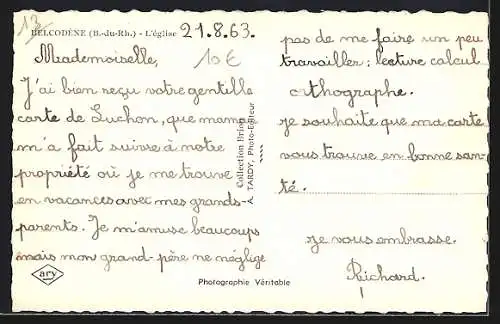 13
BELCODÈNE (B.-du-Rh.) - L'église
21.8.63.
10 €
Mademoiselle,
J'ai bien reçu votre gentille
carte de Luchon, que maman
m'a fait suivre à notre
propriété où je me trouve
en vacances avec mes grands-
parents. Je m'amuse beaucoups
mais mon grand-père ne néglige
pas de me faire un peu
travailler : lecture calcul
orthographe.
Je souhaite que ma carte
vous trouve en bonne san-
té.
Je vous embrasse.
Richard.
Collection Brion
A. TARDY, Photo-Editeur
ary
Photographie Véritable